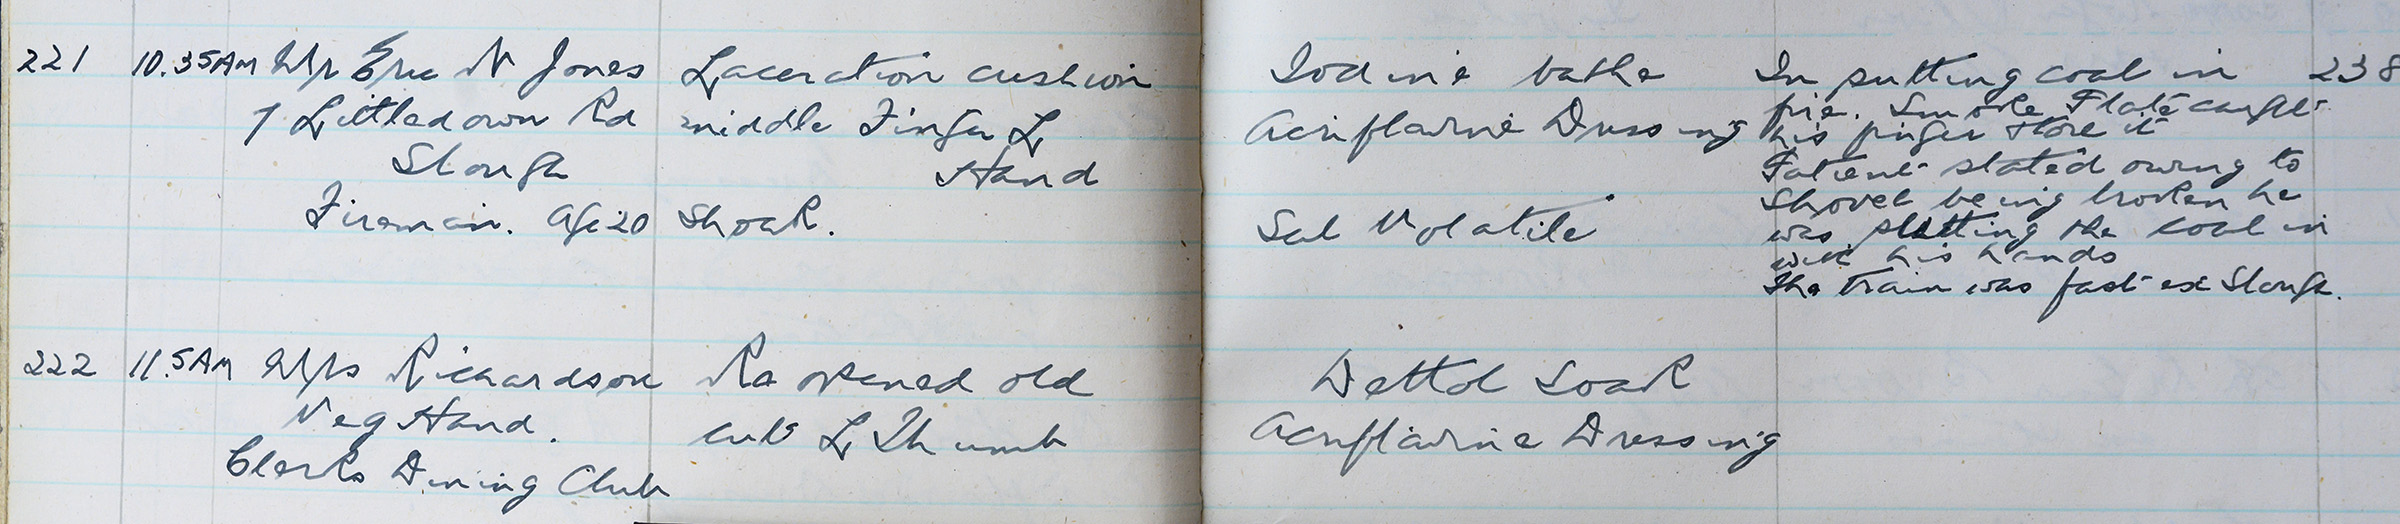 221 10.35AM Mr Eric N Jones Laceration cushion Iodine bathe In putting coal in 238
7 Littledown Rd middle Finger L Acriflavine Dressing fire. Smoke Plate caught
his finger & tore it
Slough Hand Patient stated owing to
Shovel being broken he
Fireman. Age 20 Shock. Sal Volatile was putting the coal in
with his hands
The train was fast ex Slough.
222 11.5AM Mrs Richardson Re opened old Dettol Soak
Veg Hand. cut L Thumb Acriflavine Dressing
Clerks Dining Club